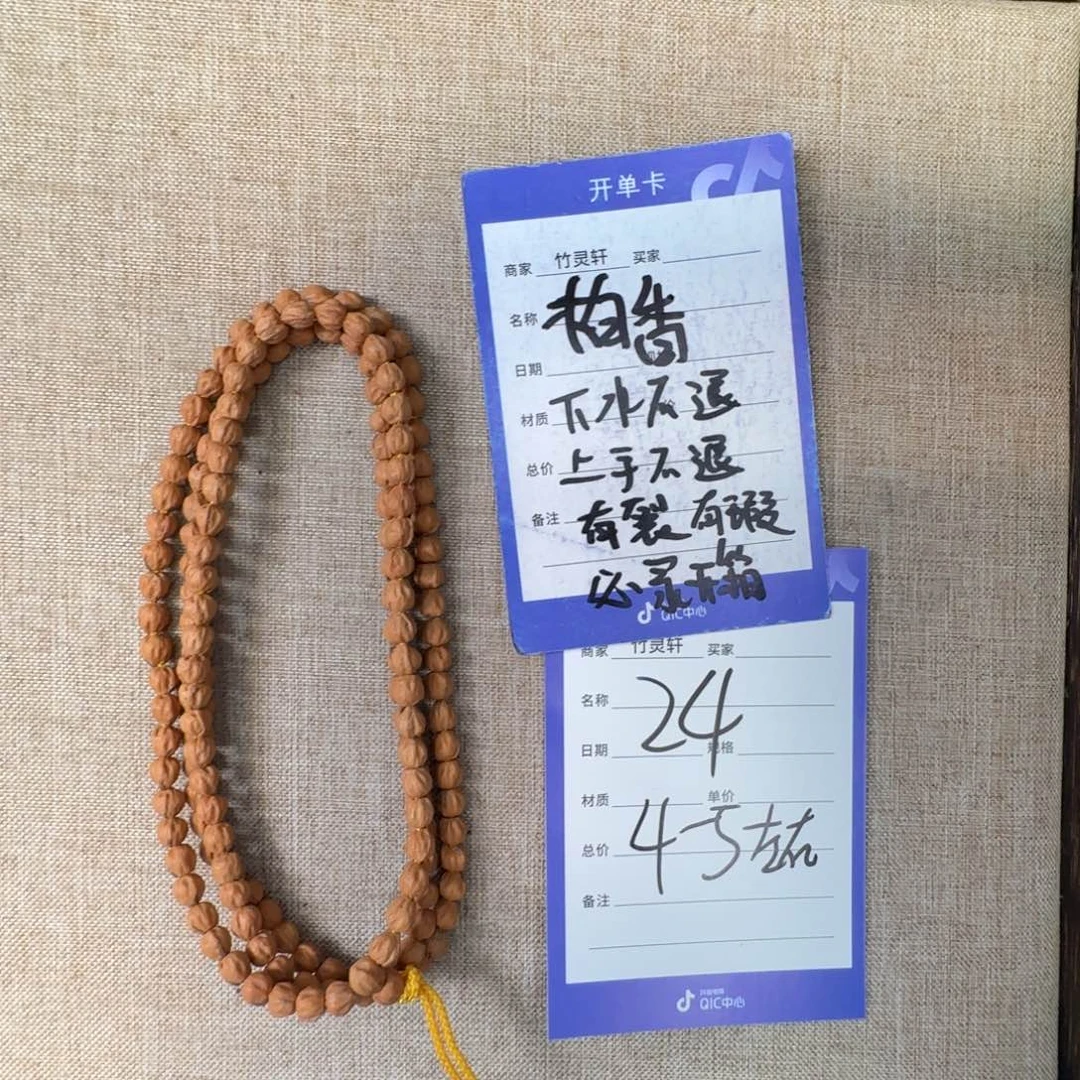 开单卡
商家 竹灵轩 买家
名称 柏香
日期
材质 下水不退
总价 上手不退
备注 有裂有瑕
必录开箱
QIC中心
商家 竹灵轩 买家
名称 24
日期 规格
材质 单价
总价 4号左右
备注
抖音电商
QIC中心